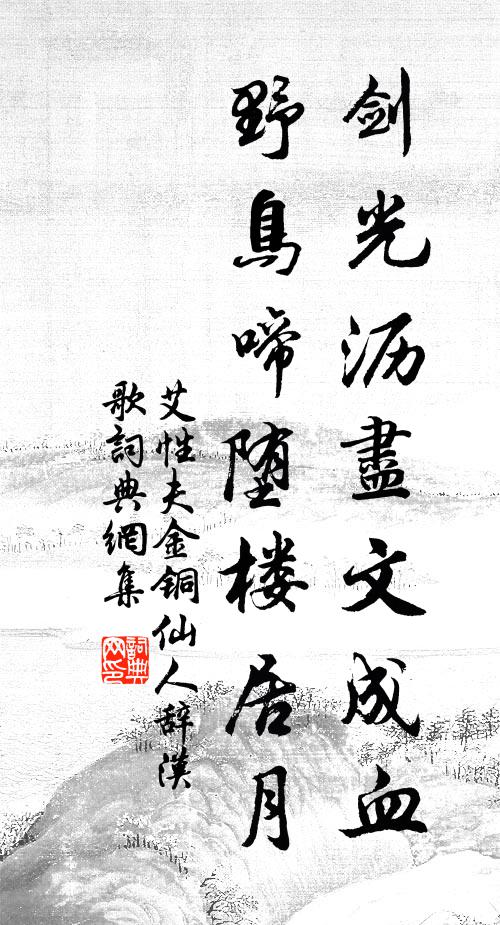 剑光沥盡文成血
野鳥啼堕楼居月
艾性夫金铜仙人辞漢
歌詞典網集
詞典
网印